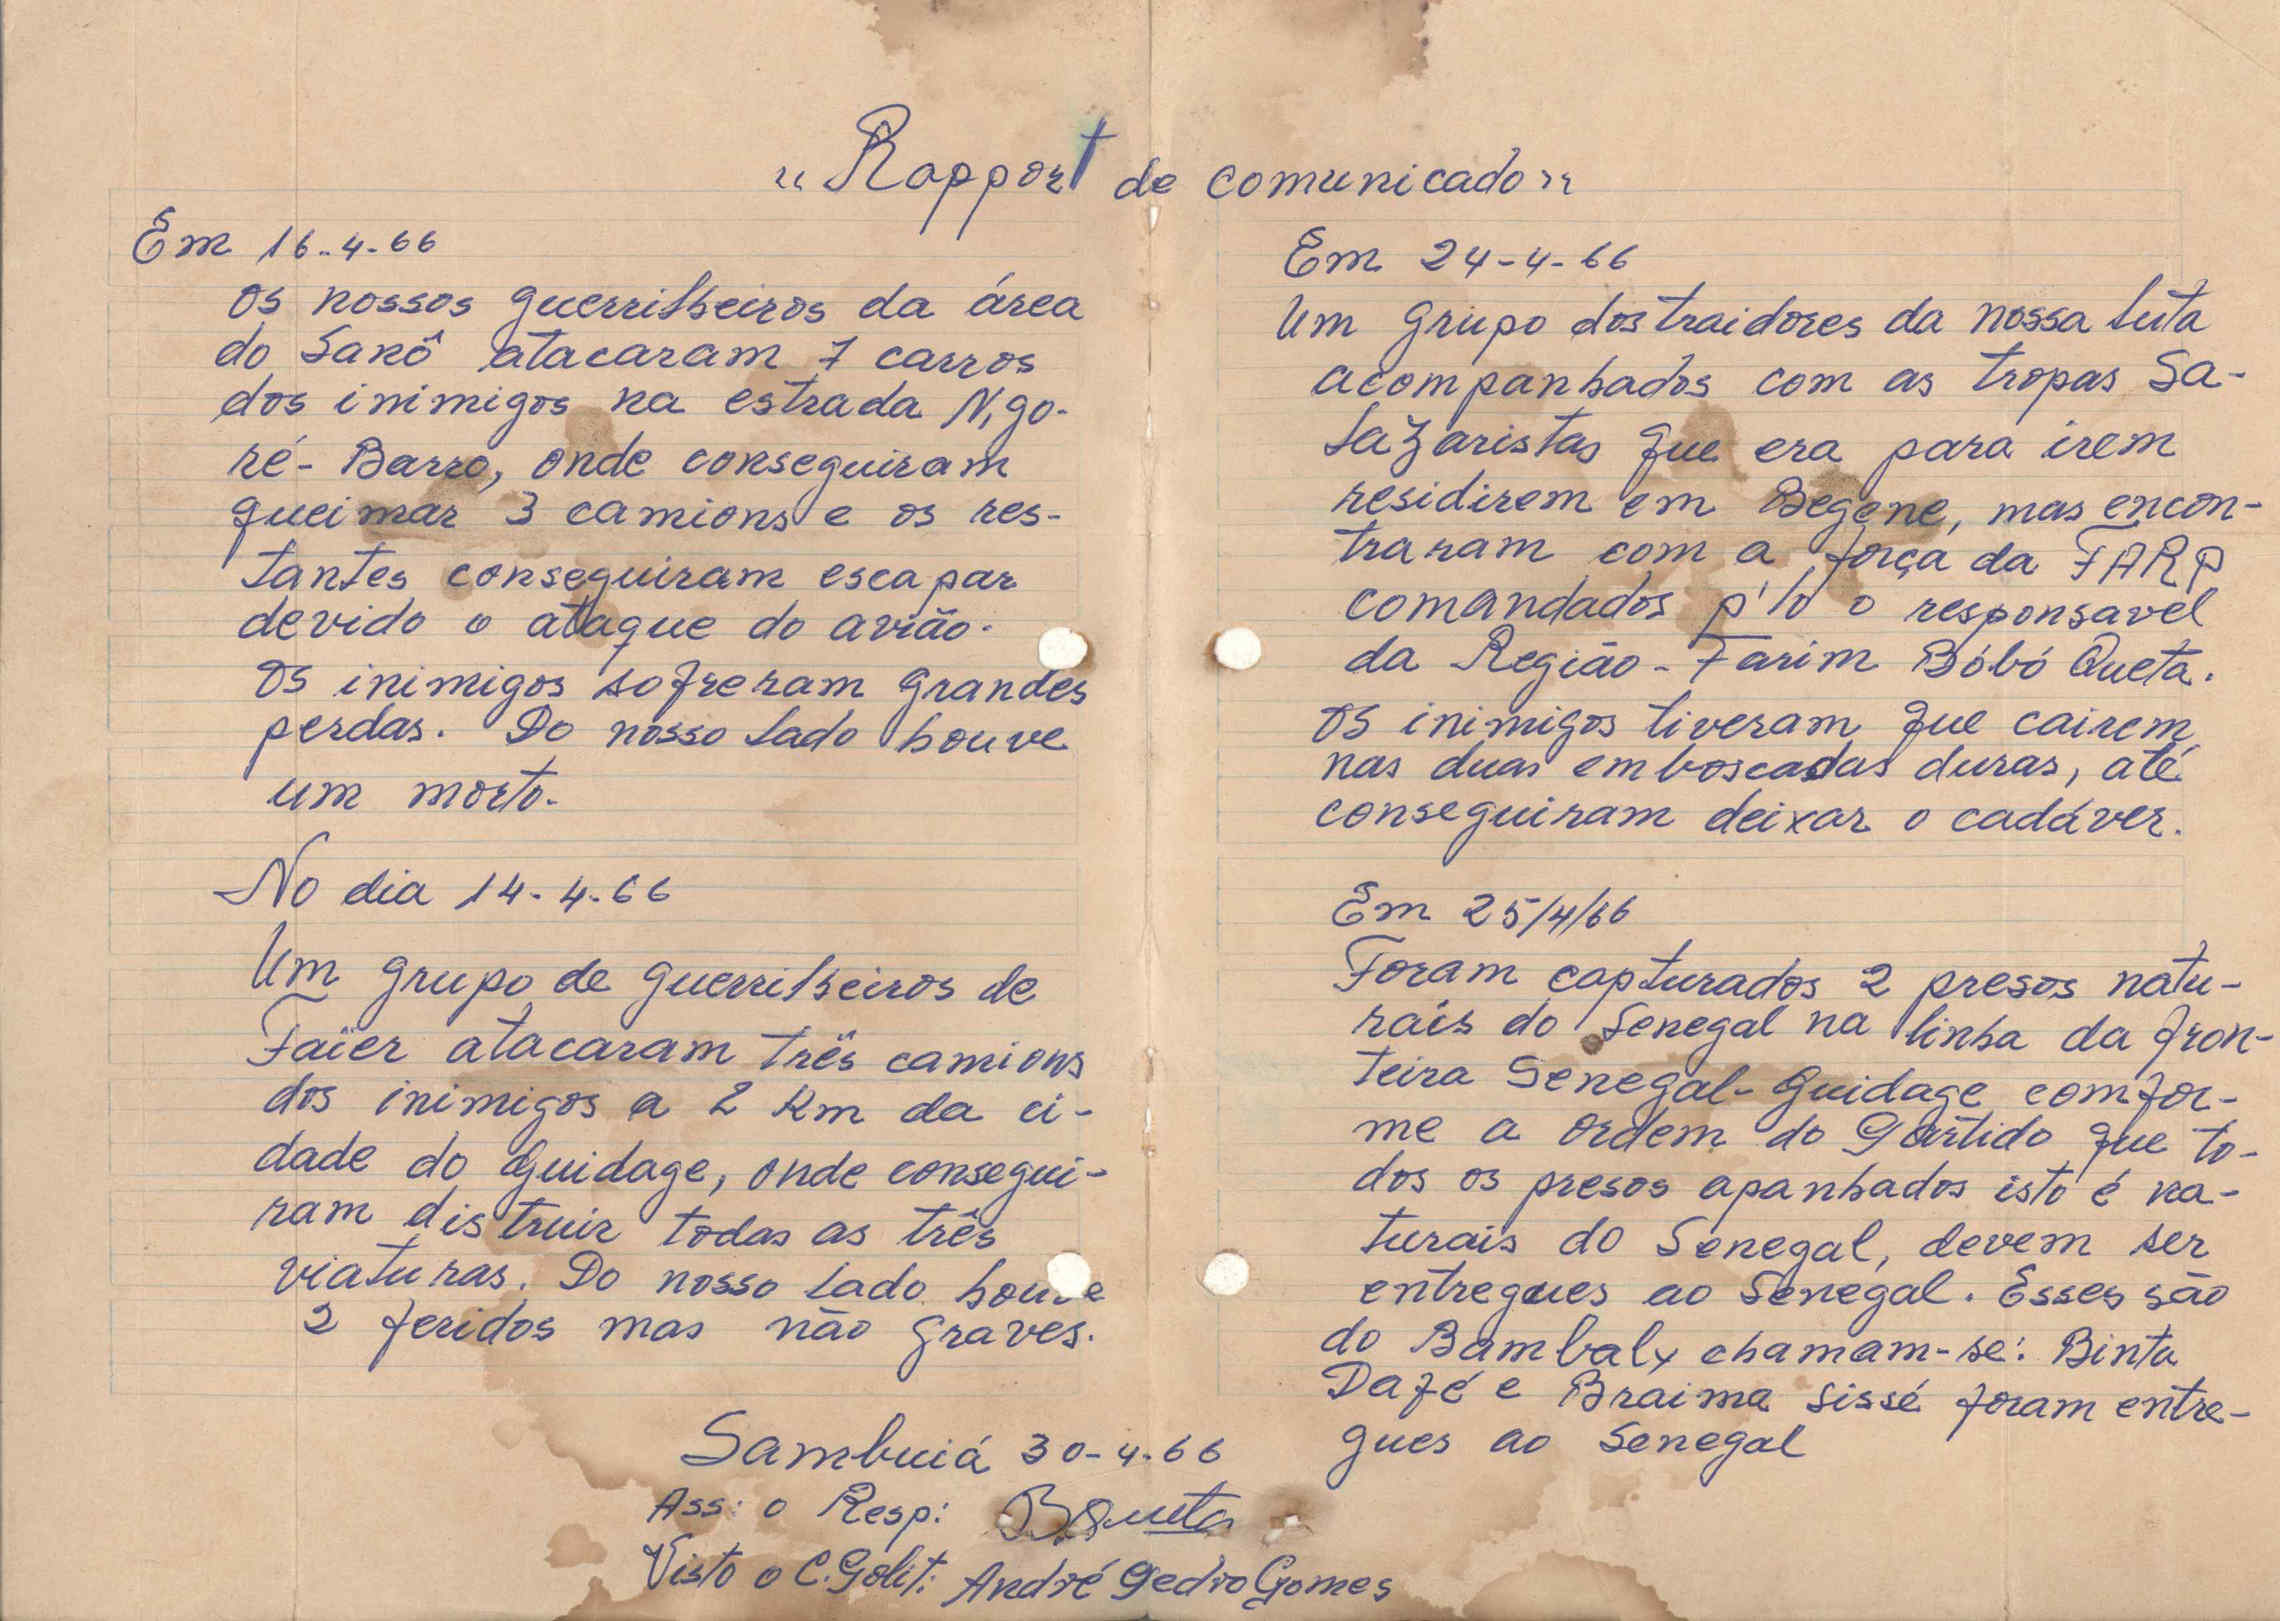 "Rapport de comunicado"
Em 16-4-66
Os nossos guerrilheiros da área
do Sanô atacaram 7 carros
dos inimigos na estrada N,go-
ré-Barro, onde conseguiram
queimar 3 camions e os res-
tantes conseguiram escapar
devido o ataque do avião.
Os inimigos sofreram grandes
perdas. Do nosso lado houve
um morto.
No dia 14-4-66
Um grupo de guerrilheiros de
Faïer atacaram três camions
dos inimigos a 2 Km da ci-
dade do Guidage, onde consegui-
ram distruir todas as três
viaturas. Do nosso lado houve
2 feridos mas não graves.
Em 24-4-66
Um grupo dos traidores da nossa luta
acompanhados com as tropas Sa-
lazaristas que era para irem
residirem em Begene, mas encon-
traram com a força da FARP
comandados p'lo o responsavel
da Região-Farim Bóbó Queta.
Os inimigos tiveram que cairem
nas duas emboscadas duras, até
conseguiram deixar o cadáver.
Em 25/4/66
Foram capturados 2 presos natu-
rais do Senegal na linha da fron-
teira Senegal-Guidage comfor-
me a ordem do Partido que to-
dos os presos apanhados isto é na-
turais do Senegal, devem ser
entregues ao Senegal. Esses são
do Bambaly chamam-se: Binta
Dafé e Braima Sissé foram entre-
gues ao Senegal
Sambuiá 30-4-66
Ass: o Resp: BQueta
Visto o C.Polit: André Pedro Gomes